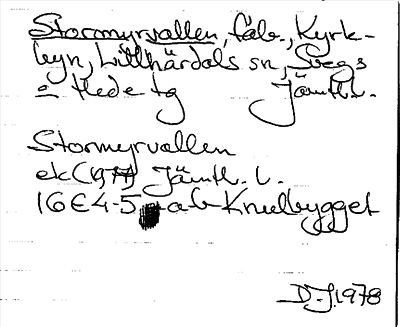 Stormyrvallen, fäb., Kyrk-
byn, Lillhärdals sn, Svegs
o Hede tg Jämtl.
Stormyrvallen
ek (1977) Jämtl. l.
16E 4-5 a-b Knulbygget
D-J. 1978